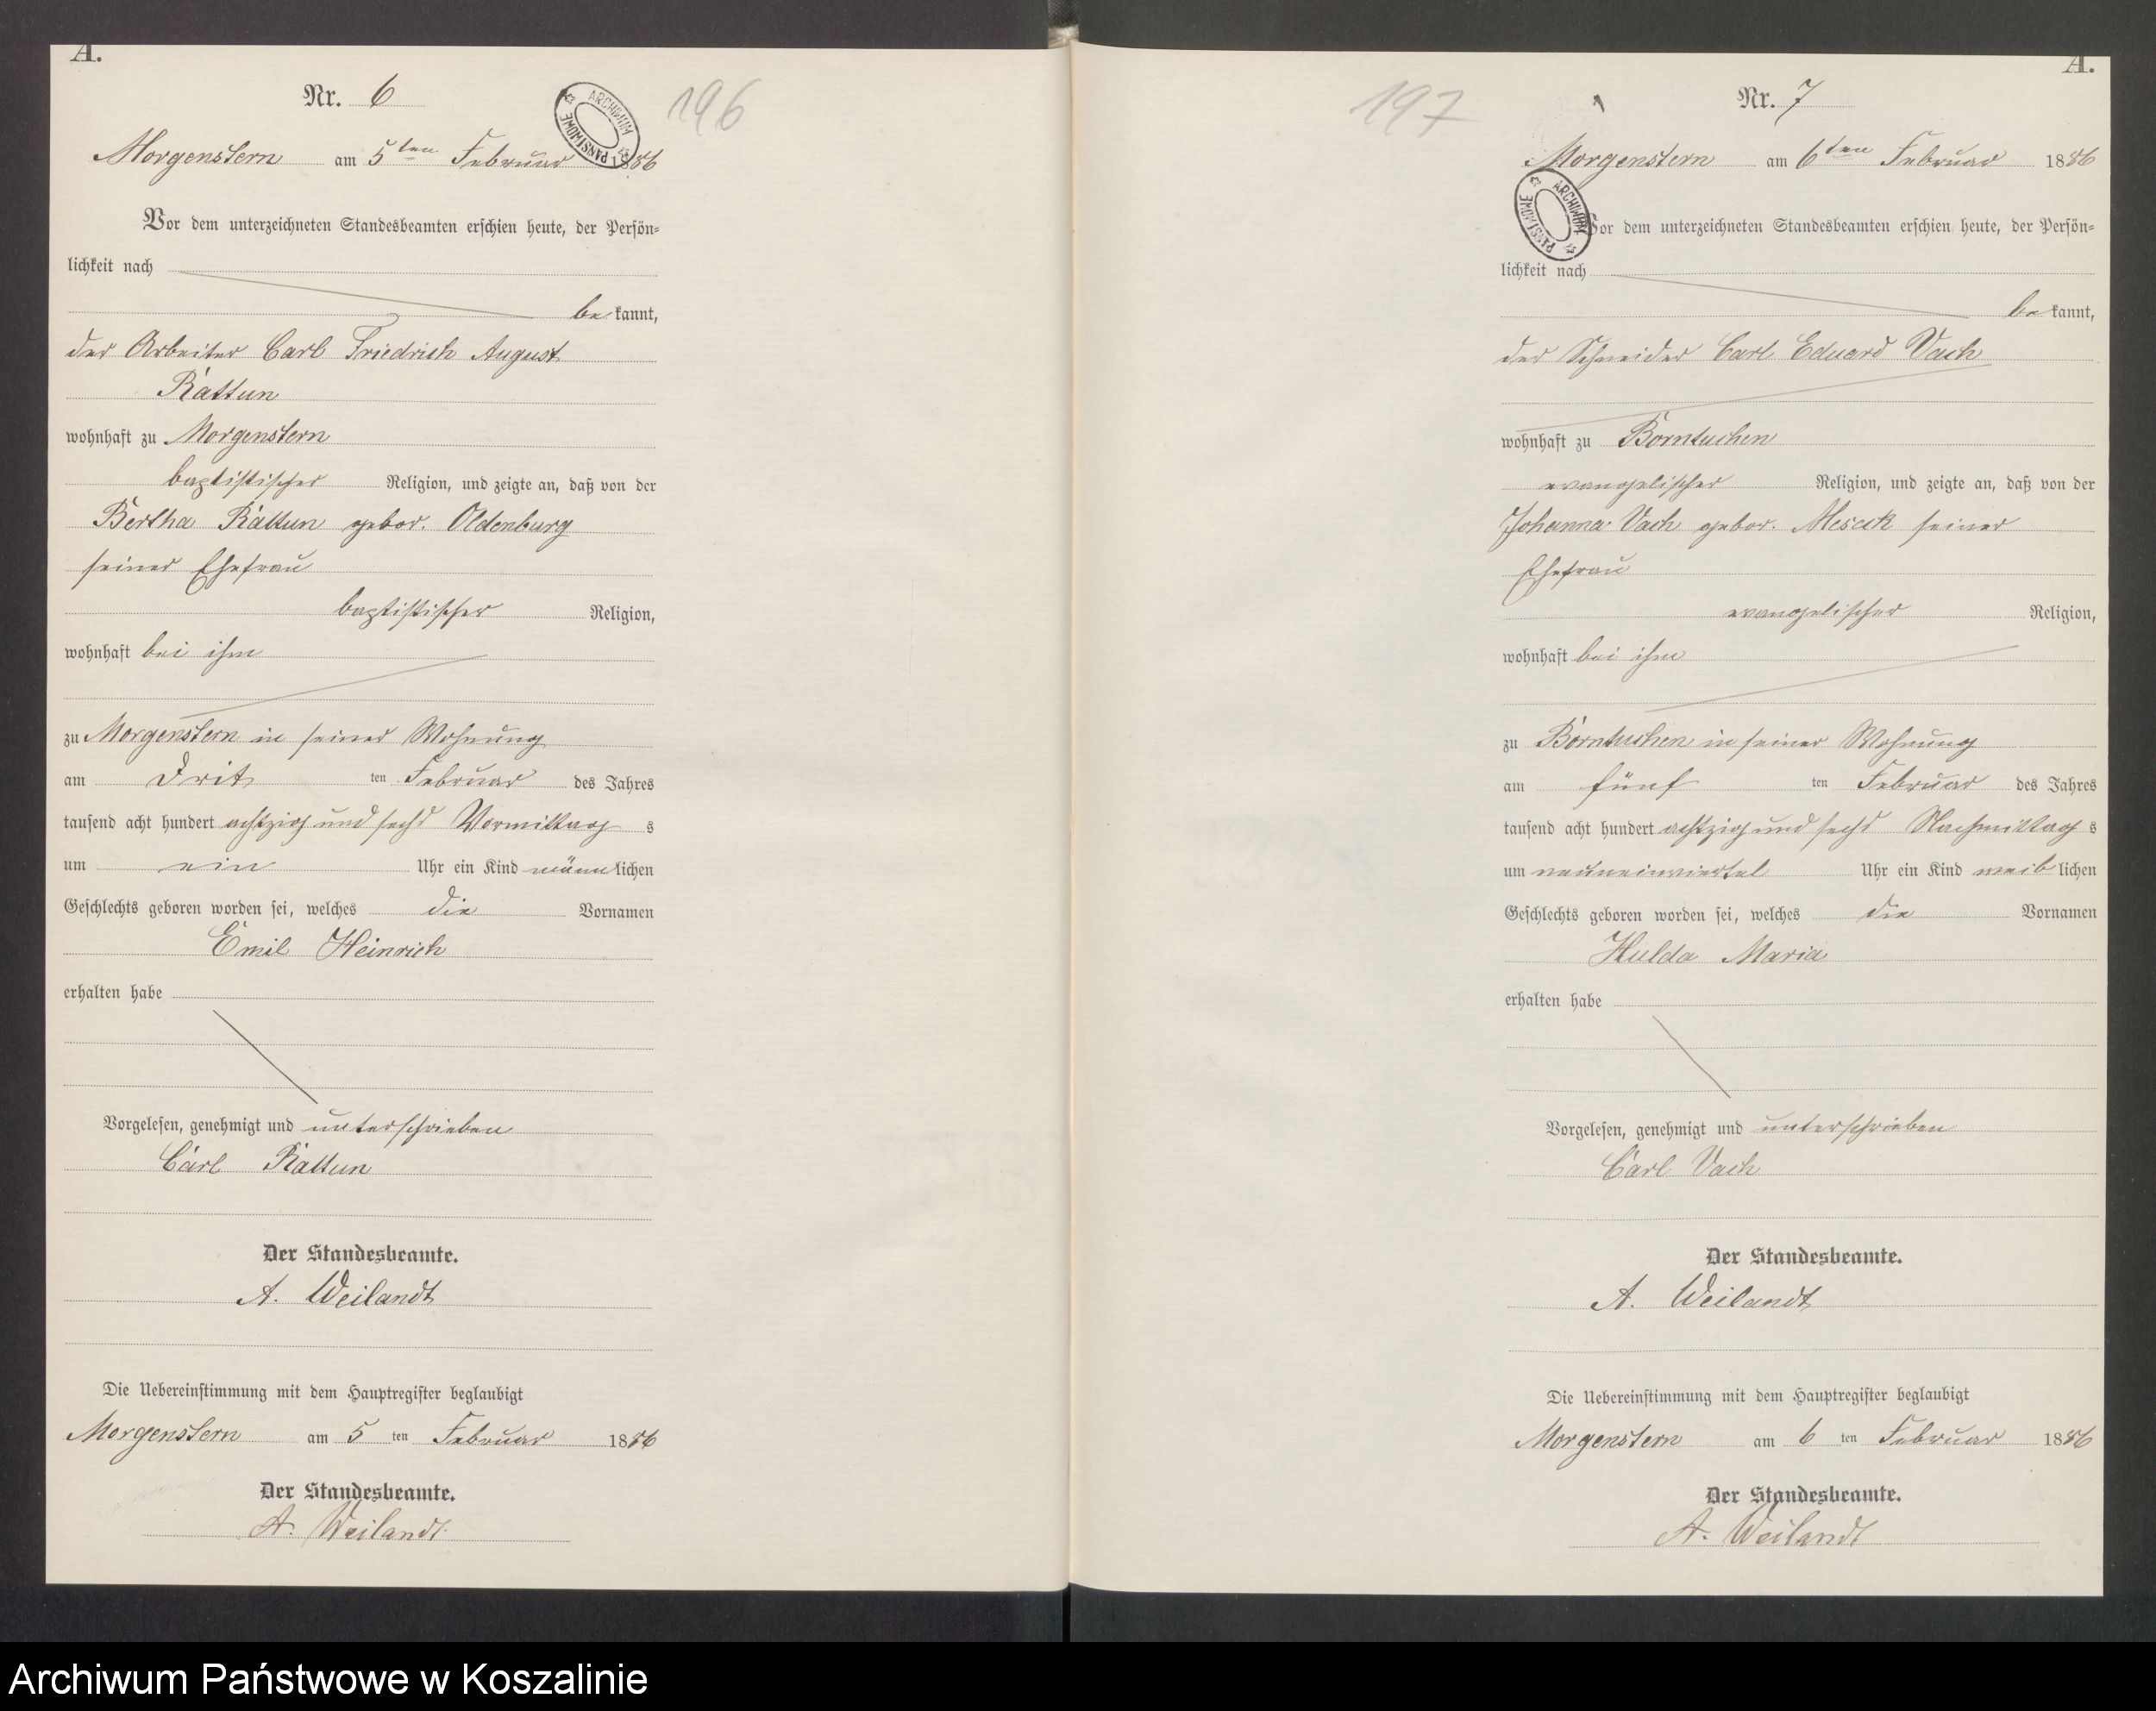 A.
Nr. 6
ARCHIWUM PAŃSTWOWE
196
Morgenstern am 5ten Februar 1886
Vor dem unterzeichneten Standesbeamten erschien heute, der Persön-
lichkeit nach
bekannt,
der Arbeiter Carl Friedrich August
Rattun
wohnhaft zu Morgenstern
baptistischer Religion, und zeigte an, daß von der
Bertha Rattun gebor. Oldenburg
seiner Ehefrau
baptistischer Religion,
wohnhaft bei ihm
zu Morgenstern in seiner Wohnung
am drit ten Februar des Jahres
tausend acht hundert achtzig und sechs Vormittags
um ein Uhr ein Kind männlichen
Geschlechts geboren worden sei, welches die Vornamen
Emil Heinrich
erhalten habe
Vorgelesen, genehmigt und unterschrieben
Carl Rattun
Der Standesbeamte.
A. Weilandt
Die Uebereinstimmung mit dem Hauptregister beglaubigt
Morgenstern am 5 ten Februar 1886
Der Standesbeamte.
A. Weilandt
A.
197
Nr. 7
Morgenstern am 6ten Februar 1886
ARCHIWUM PAŃSTWOWE
Vor dem unterzeichneten Standesbeamten erschien heute, der Persön-
lichkeit nach
bekannt,
der Schneider Carl Eduard Vach
wohnhaft zu Borntuchen
evangelischer Religion, und zeigte an, daß von der
Johanna Vach gebor. seiner
Ehefrau
evangelischer Religion,
wohnhaft bei ihm
zu Borntuchen in seiner Wohnung
am fünf ten Februar des Jahres
tausend acht hundert achtzig und sechs Nachmittags
um neuneinviertel Uhr ein Kind weiblichen
Geschlechts geboren worden sei, welches die Vornamen
Hulda Maria
erhalten habe
Vorgelesen, genehmigt und unterschrieben
Carl Vach
Der Standesbeamte.
A. Weilandt
Die Uebereinstimmung mit dem Hauptregister beglaubigt
Morgenstern am 6 ten Februar 1886
Der Standesbeamte.
A. Weilandt
Archiwum Państwowe w Koszalinie